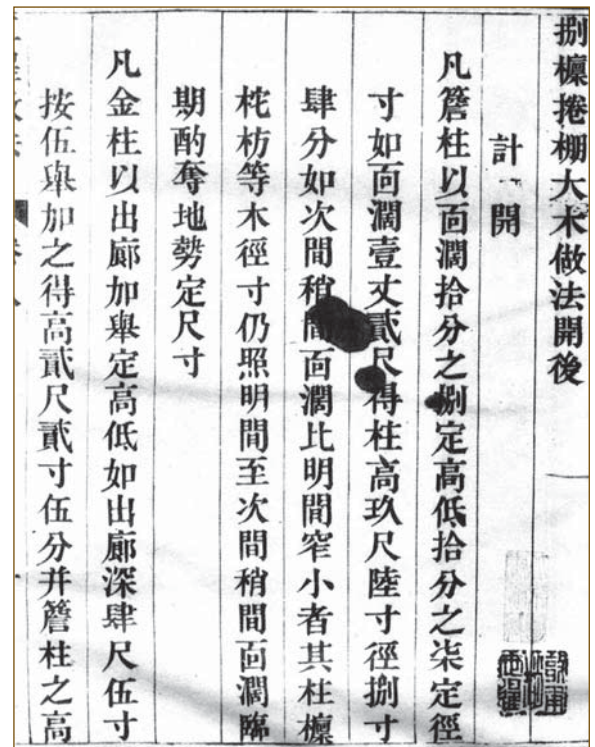 捌檁捲棚大木做法開後
計開
凡簷柱以面濶拾分之捌定高低拾分之柒定徑
寸如面濶壹丈貳尺得柱高玖尺陸寸徑捌寸
肆分如次間稍間面濶比明間窄小者其柱檁
柁枋等木徑寸仍照明間至次間稍間面濶臨
期酌奪地勢定尺寸
凡金柱以出廊加舉定高低如出廊深肆尺伍寸
按伍舉加之得高貳尺貳寸伍分并簷柱之高